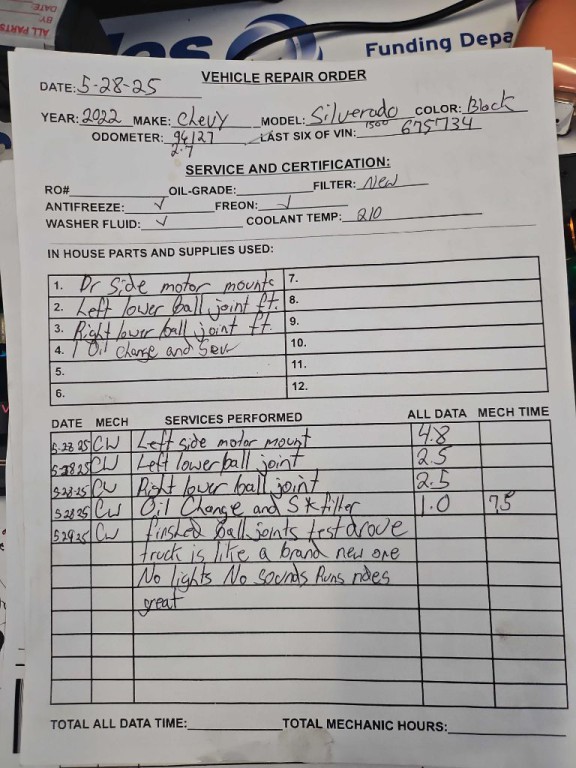 ALL PARTS
BY
DATE:
Funding Depa
VEHICLE REPAIR ORDER
DATE: 5-28-25
YEAR: 2022 MAKE: Chevy MODEL: Silverado 1500 COLOR: Black
ODOMETER: 94127 LAST SIX OF VIN: 675734
2.7
SERVICE AND CERTIFICATION:
RO# OIL-GRADE: FILTER: New
ANTIFREEZE: ✓ FREON: ✓
WASHER FLUID: ✓ COOLANT TEMP: 210
IN HOUSE PARTS AND SUPPLIES USED:
1. Dr Side motor mounts 7.
2. Left lower ball joint ft. 8.
3. Right lower ball joint ft. 9.
4. 1 Oil change and Serv 10.
5. 11.
6. 12.
DATE MECH SERVICES PERFORMED ALL DATA MECH TIME
5-28-25 CW Left side motor mount 4.8
5-28-25 CW Left lower ball joint 2.5
5-28-25 CW Right lower ball joint 2.5
5-28-25 CW Oil Change and S* filter 1.0 7.5
5-29-25 CW finshed ball joints test drove
truck is like a brand new one
No lights No sounds Runs rides
great
TOTAL ALL DATA TIME: TOTAL MECHANIC HOURS: